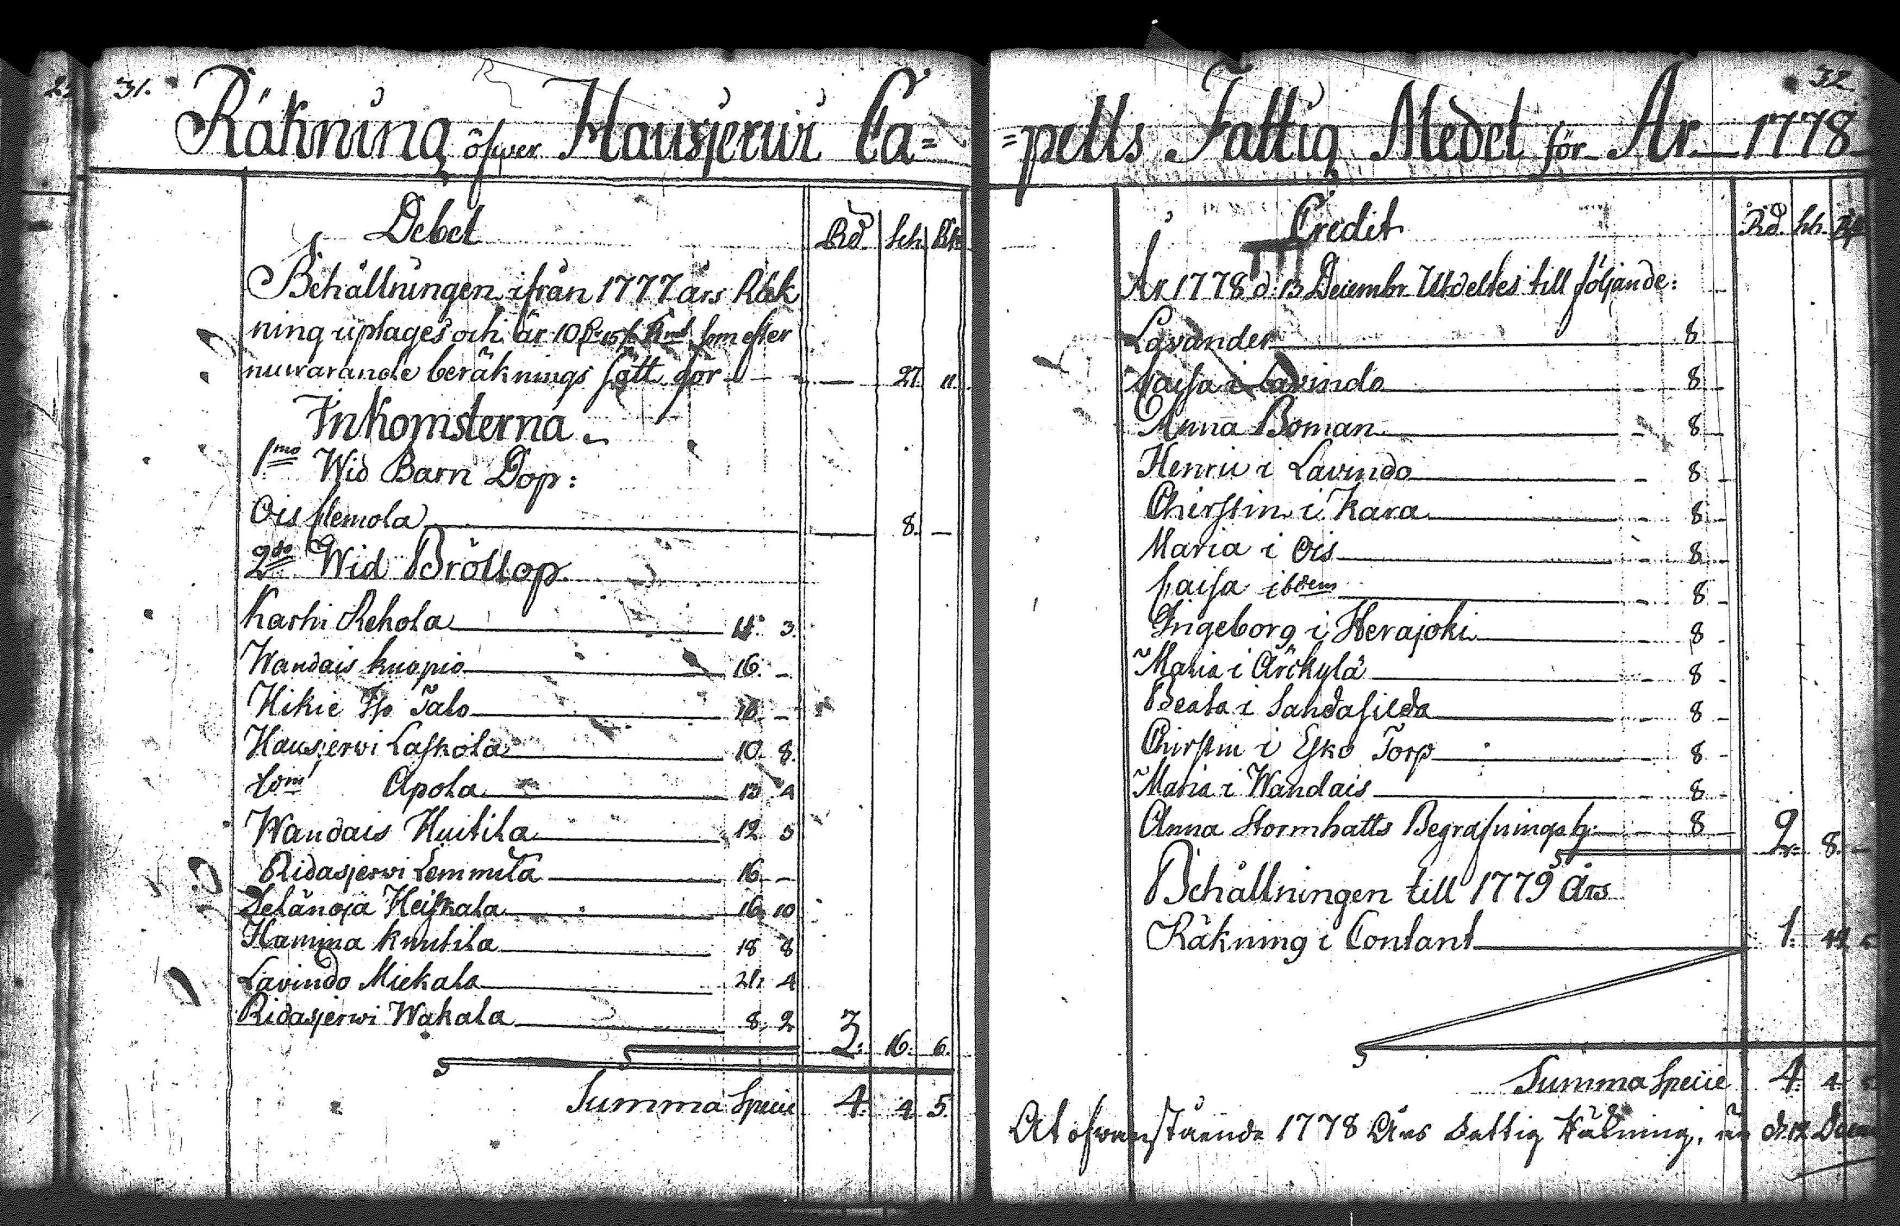 31.
Räkning öfwer Hausjerwi Ca=
Debet Rd. sch. Rst
Behållningen ifrån 1777 års Räk
ning uptages och är 10 som efter
nuwarande beräknings sätt gör — 27. 11.
Inkomsterna
1mo Wid Barn Dop:
Ois flemola — 8. —
2do Wid Bröllop
Karhi Rehola 3.
Wandais knopio 16. -
Hikie Talo 16 -
Hausjerwi Laskola 10. 8.
Apola 13 4
Wandais Huitila 12 5
Ridasjerwi Lemmila 16 -
Selänoja Heiskala 16. 10
Hamina knutila 18 8
Lavindo Miekala 21. 4
Ridasjerwi Wahala 8. 2 3. 16. 6.
Summa Specie 4. 4. 5.
32
=pells Fattig Medel för År 1778
Credit Rd. sch.
År 1778 d. 13 Decembr. Utdeltes till följande:
Lavander 8
Caisa i Lavindo 8
Anna Boman 8
Henric i Lavindo 8
Chirstin i Kara 8
Maria i Ois 8
Caisa ibdem 8
Ingeborg i Herajoki 8
Maria i Arckylä 8
Beata i 8
Chirstin i Esko Torp 8
Maria i Wandais 8
Anna Stormhatts Begrafnings h: 8 2. 8. -
Behållningen till 1779 Års
Räkning i Contant 1.
Summa Specie 4. 4. 5
At ofwanstående 1778 Års Fattig Räkning,